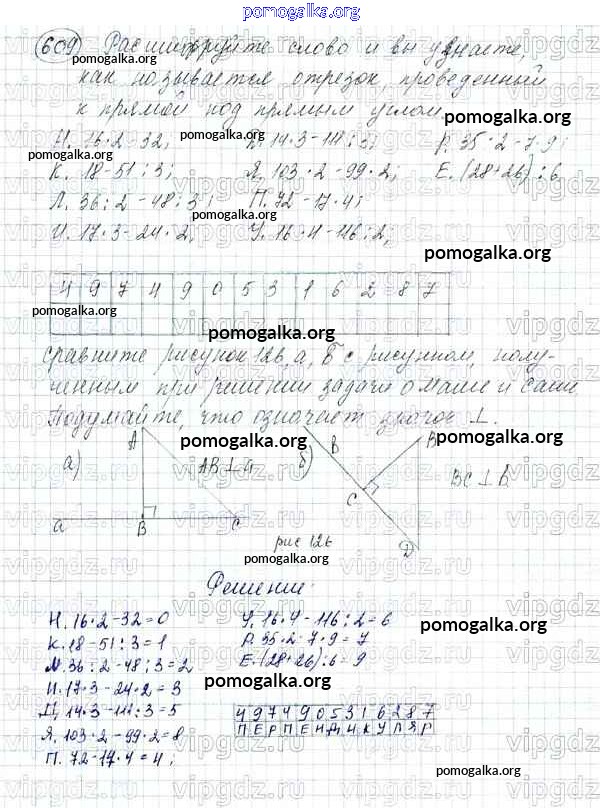 pomogalka.org
609 Расшифруйте слово и вы узнаете,
как называется отрезок, проведенный
к прямой под прямым углом.
Н. 16·2-32; Д. 14·3-111:3; Р. 35·2-7·9;
К. 18-51:3; Я. 103·2-99·2; Е. (28+26):6
Л. 36:2-48:3; П. 72-17·4;
И. 17·3-24·2; У. 16·4-116:2;
4 9 7 4 9 0 5 3 1 6 2 8 7
сравните рисунок 126, а, б с рисунком, полу-
ченным при решении задачи о маше и саше
Подумайте, что означает значок ⊥.
а) A AB⊥a б) B B BC⊥B
a B C C D
рис 126
Решение:
Н. 16·2-32=0 У. 16·4-116:2=6
К. 18-51:3=1 Р. 35·2-7·9=7
Л. 36:2-48:3=2 Е. (28+26):6=9
И. 17·3-24·2=3
Д. 14·3-111:3=5
Я. 103·2-99·2=8
П. 72-17·4=4;
4 9 7 4 9 0 5 3 1 6 2 8 7
П Е Р П Е Н Д И К У Л Я Р
pomogalka.org
vipgdz.ru